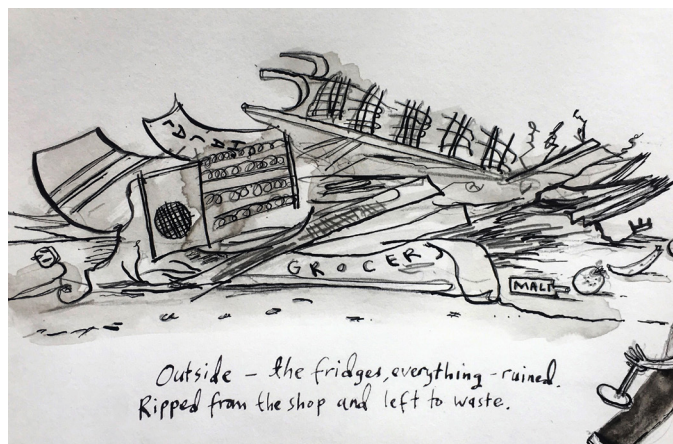 GROCERY
MALT
Outside – the fridges, everything – ruined.
Ripped from the shop and left to waste.